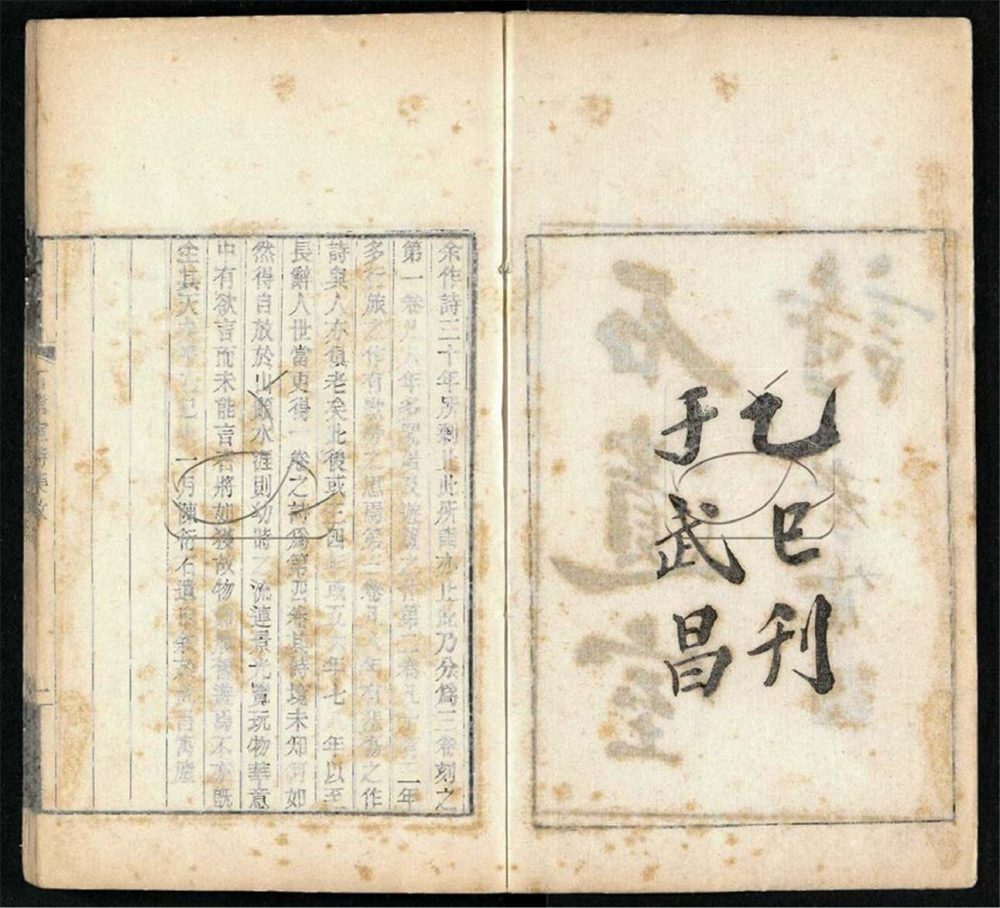 乙巳刊
于武昌
余作詩三十年所剩止此所能亦止此乃分爲三卷刻之
第一卷凡八年多閒居及遊覽之作第二卷凡十二年
多行旅之作有歌勞之思焉第三卷凡八年
詩與人亦俱老矣此後或三四年或五六年七八年以至
長辭人世當更得一卷之詩爲第四卷其詩境未知何如
然得自放於山巓水涯則幼時之流連景光賞玩物華意
中有欲言而未能言者將如獲故物
全其天
一月陳衍石遺